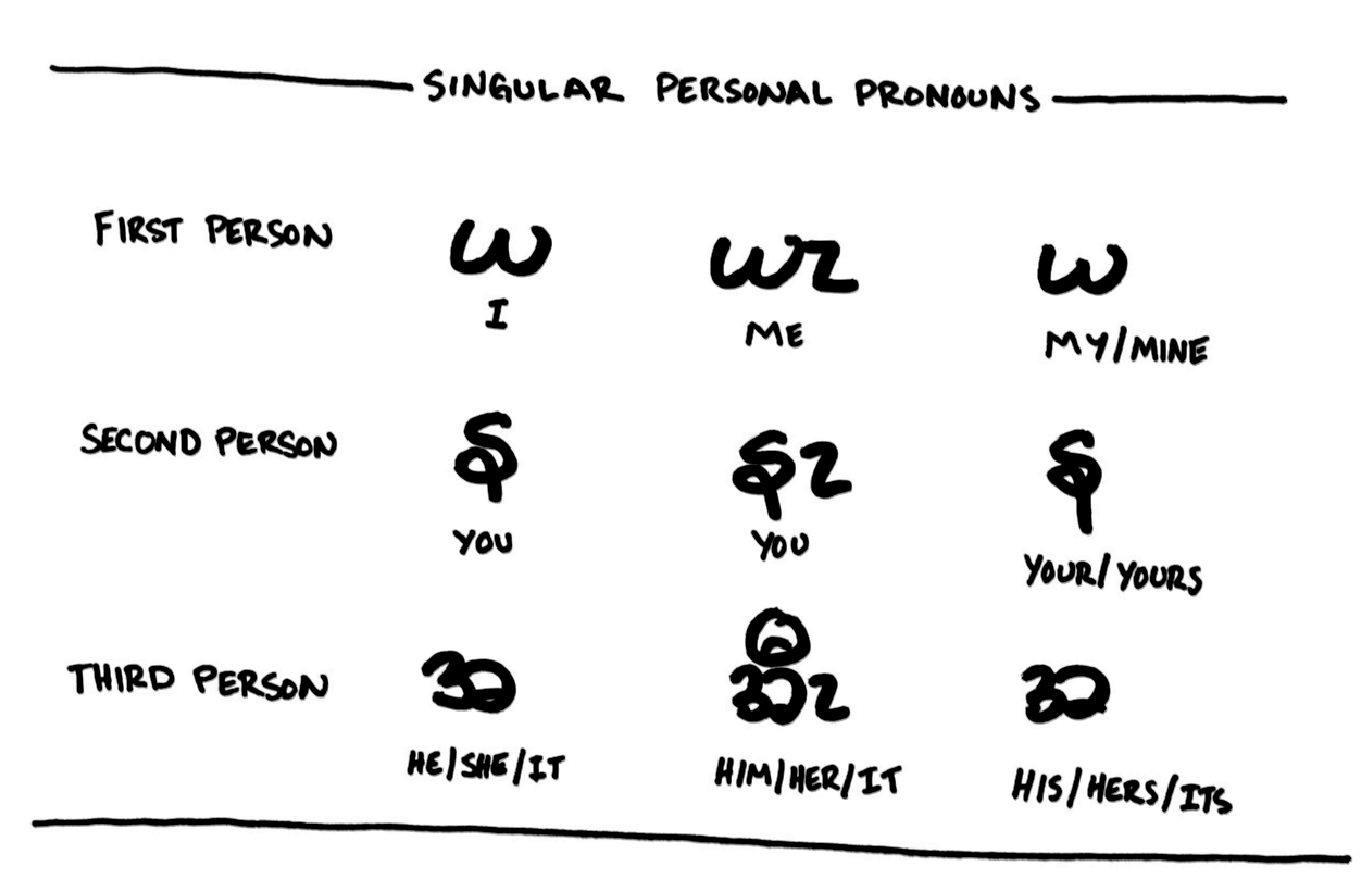 SINGULAR PERSONAL PRONOUNS
FIRST PERSON
I ME MY/MINE
SECOND PERSON
YOU YOU YOUR/YOURS
THIRD PERSON
HE/SHE/IT HIM/HER/IT HIS/HERS/ITS